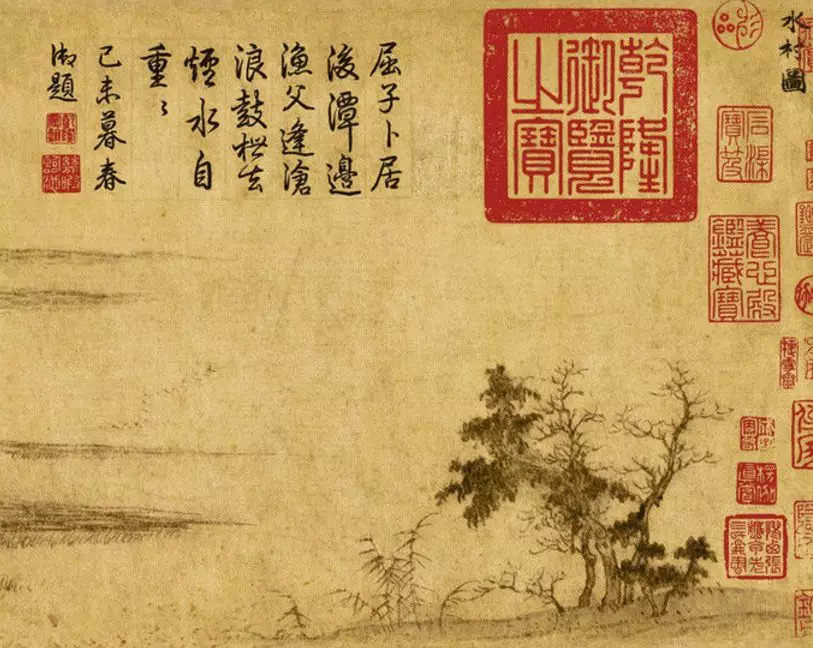 水村圖
石渠寶笈
養心殿鑑藏寶
楞伽真賞
乾隆御覽之寶
屈子卜居
後潭邊
漁父逢滄
浪鼓枻去
煙水自
重〻
己未暮春
御題